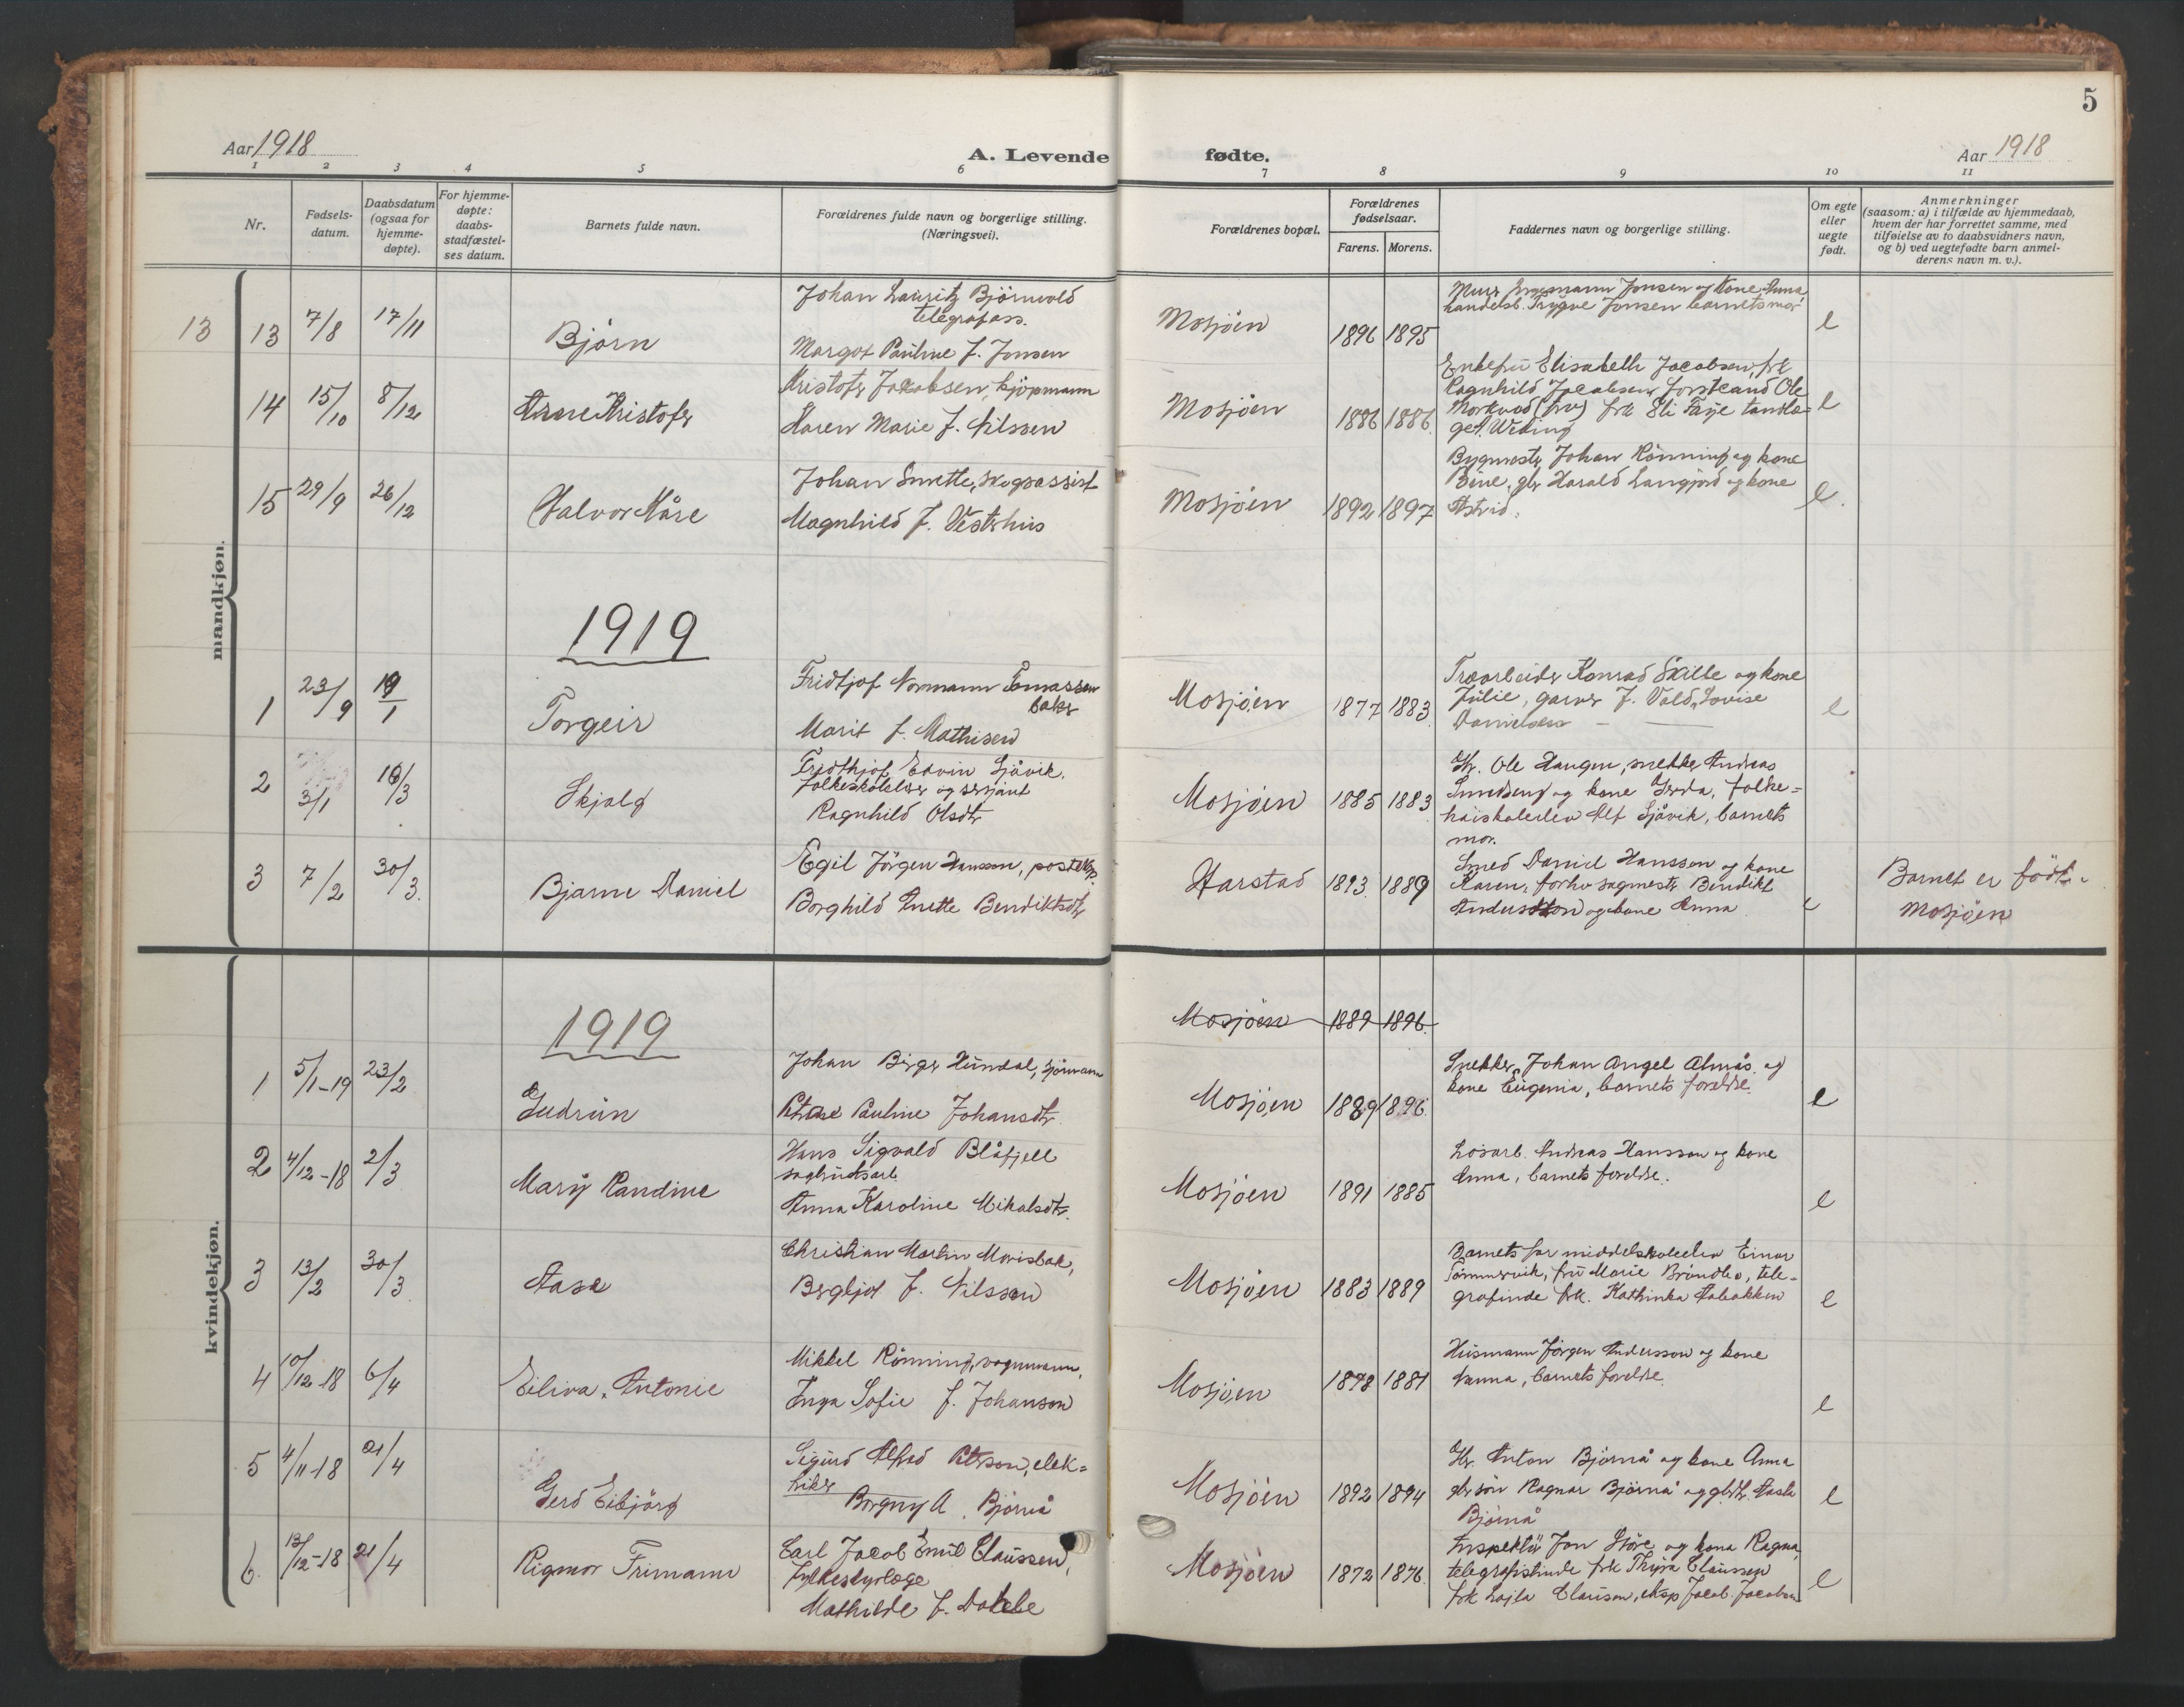 5
Aar 1918
A. Levende fødte.
Aar 1918
1 2 3 4 5 6 7 8 9 10 11
Nr.
Fødsels-
datum.
Daabsdatum
(ogsaa for
hjemme-
døpte).
For hjemme-
døpte:
daabs-
stadfæstel-
ses datum.
Barnets fulde navn.
Forældrenes fulde navn og borgerlige stilling.
(Næringsvei).
Forældrenes bopæl.
Forældrenes
fødselsaar.
Farens. Morens.
Faddernes navn og borgerlige stilling.
Om egte
eller
uegte
født.
Anmerkninger
(saasom: a) i tilfælde av hjemmedaab,
hvem der har forrettet samme, med
tilføielse av to daabsvidners navn,
og b) ved uegtefødte barn anmel-
derens navn m. v.).
mandkjøn.
13 13 7/8 17/11 Bjørn
Johan Lauritz Bjørnvold
telegrafass.
Margot Pauline f. Jonsen
Mosjøen 1896 1895
Murer Jonsen og kone Anna
handelsb. Trygve Jonsen barnets mor
e
14 15/10 8/12 Arne Kristofer
Kristofer Jakobsen, kjøpmann
Karen Marie f. Nilssen
Mosjøen 1886 1886
Enkefru Elisabeth Jacobsen, frk
Ragnhild Jacobsen, forstcand Ole
Morkved (frv) frk Eli Faye tandlæ-
ge
e
15 29/9 26/12 Halvor Kåre
Johan Smette, skogassist
Magnhild f. Vesterhus
Mosjøen 1892 1897
Bygmester Johan Rønning og kone
Bine, gbr Harald Langjord og kone
Astrid.
e.
1919
1 23/9 19/1 Torgeir
Fridtjof Normann Tomassen
baker
Marit f. Mathisen
Mosjøen 1877 1883
Træarbeider Konrad Skille og kone
Julie, garver J. Vold, Lovise
Danielsen
e
2 3/1 16/3 Skjalg
Fridthjof Edvin Sjåvik,
folkeskolelærer og sersjant
Ragnhild Olsdtr
Mosjøen 1885 1883
Gbr. Ole Haugen, snekker Andreas
og kone Gerda, folke-
høiskoleelev Alf Sjåvik, barnets
mor.
3 7/2 30/3. Bjarne Daniel
Egil Jørgen Hansson, posteksp.
Borghild Anette Bendiktsdtr
Harstad 1893. 1889
Smed Daniel Hansson og kone
Karen, forhv sagmester Bendikt
Andersson og kone Anna
e
Barnet er født i
Mosjøen
kvindekjøn.
1919
Mosjøen 1889 1896.
1 5/1-19 23/2 Gudrun
Johan Birger Hundal, sjømann
Petrine Pauline Johansdtr.
Mosjøen 1889 1896.
Snekker Johan Angel Almås og
kone Eugenia, barnets foreldre.
e
2 4/12-18 2/3 Mary Randine
Hans Sigvald Blåfjell
sagbruksarb.
Anna Karoline Mikalsdtr.
Mosjøen 1891 1885
Løsarb. Andreas Hansson og kone
Anna, barnets foreldre.
e
3 13/2 30/3 Aase
Christian Martin Morisbak,
Bergljot f. Nilsson
Mosjøen 1883 1889
Barnets far middelskoleelev Einar
Tømmervik, fru Marie Brøndbo, tele-
grafinde frk. Kathinka Aabakken
e
4 10/12-18 6/4 Eiliva. Antonie
Mikkel Rønning, vognmann,
Inga Sofie f. Johanson
Mosjøen 1878 1881
Husmann Jørgen Andersson og kone
Hanna, barnets foreldre.
e
5 4/11-18 21/4 Gerd Eibjørg
Sigurd Alfred Peterson, elek-
triker
Borgny A. Bjørnå
Mosjøen 1892 1894
Gbr. Anton Bjørnå og kone Anna
gbr.søn Ragnar Bjørnå og gbdtr. Aasta
Bjørnå
e
6. 13/12-18 21/4 Rigmor Frimann
Carl Jacob Emil Claussen,
fylkesdyrlæge
Mathilde f. Dahle
Mosjøen 1872 1876.
Inspektør Jon Støre og kona Ragna,
telegrafistinde frk Thyra Claussen
frk Lajla Claussen, eksp Jacob Jacobsen
e